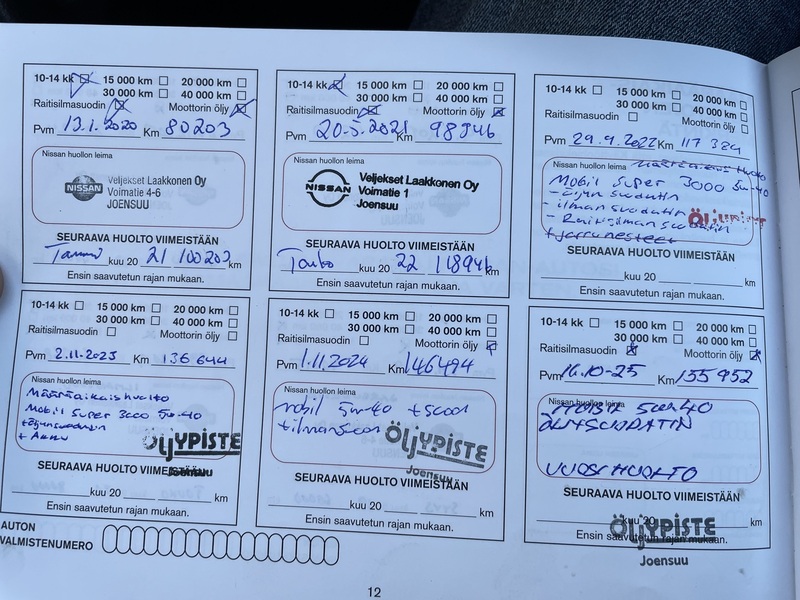 10-14 kk 15 000 km 20 000 km
30 000 km 40 000 km
Raitisilmasuodin Moottorin öljy
Pvm 13.1.2020 Km 80203
Nissan huollon leima
NISSAN
Veljekset Laakkonen Oy
Voimatie 4-6
JOENSUU
SEURAAVA HUOLTO VIIMEISTÄÄN
Tammi kuu 20 21 100203 km
Ensin saavutetun rajan mukaan.
10-14 kk 15 000 km 20 000 km
30 000 km 40 000 km
Raitisilmasuodin Moottorin öljy
Pvm 20.5.2021 Km 98946
Nissan huollon leima
NISSAN
Veljekset Laakkonen Oy
Voimatie 1
Joensuu
SEURAAVA HUOLTO VIIMEISTÄÄN
Touko kuu 20 22 118946 km
Ensin saavutetun rajan mukaan.
10-14 kk 15 000 km 20 000 km
30 000 km 40 000 km
Raitisilmasuodin Moottorin öljy
Pvm 29.9.2022 Km 117 384
Nissan huollon leima
Mobil Super 3000 5w-40
- Öljyn suodatin
- ilman suodatin
- Raitisilman suodatin
+ jarrunesteet
ÖLJYPISTE
SEURAAVA HUOLTO VIIMEISTÄÄN
kuu 20 km
Ensin saavutetun rajan mukaan.
10-14 kk 15 000 km 20 000 km
30 000 km 40 000 km
Raitisilmasuodin Moottorin öljy
Pvm 2.11.2023 Km 136 644
Nissan huollon leima
Määräaikaishuolto
Mobil Super 3000 5w-40
+ Akku
ÖLJYPISTE
Joensuu
SEURAAVA HUOLTO VIIMEISTÄÄN
kuu 20 km
Ensin saavutetun rajan mukaan.
10-14 kk 15 000 km 20 000 km
30 000 km 40 000 km
Raitisilmasuodin Moottorin öljy
Pvm 1.11.2024 Km 146494
Nissan huollon leima
mobil 5w-40
ÖLJYPISTE
Joensuu
SEURAAVA HUOLTO VIIMEISTÄÄN
kuu 20 km
Ensin saavutetun rajan mukaan.
10-14 kk 15 000 km 20 000 km
30 000 km 40 000 km
Raitisilmasuodin Moottorin öljy
Pvm 16.10-25 Km 155 952
Nissan huollon leima
MOBIL 5w40
ÖLJYSUODATIN
VUOSIHUOLTO
SEURAAVA HUOLTO VIIMEISTÄÄN
kuu 20 km
Ensin saavutetun rajan mukaan.
ÖLJYPISTE
Joensuu
AUTON
VALMISTENUMERO
12